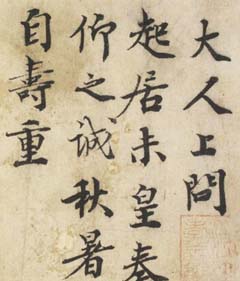 大人上問
起居未皇奉
仰之誠秋暑
自壽重